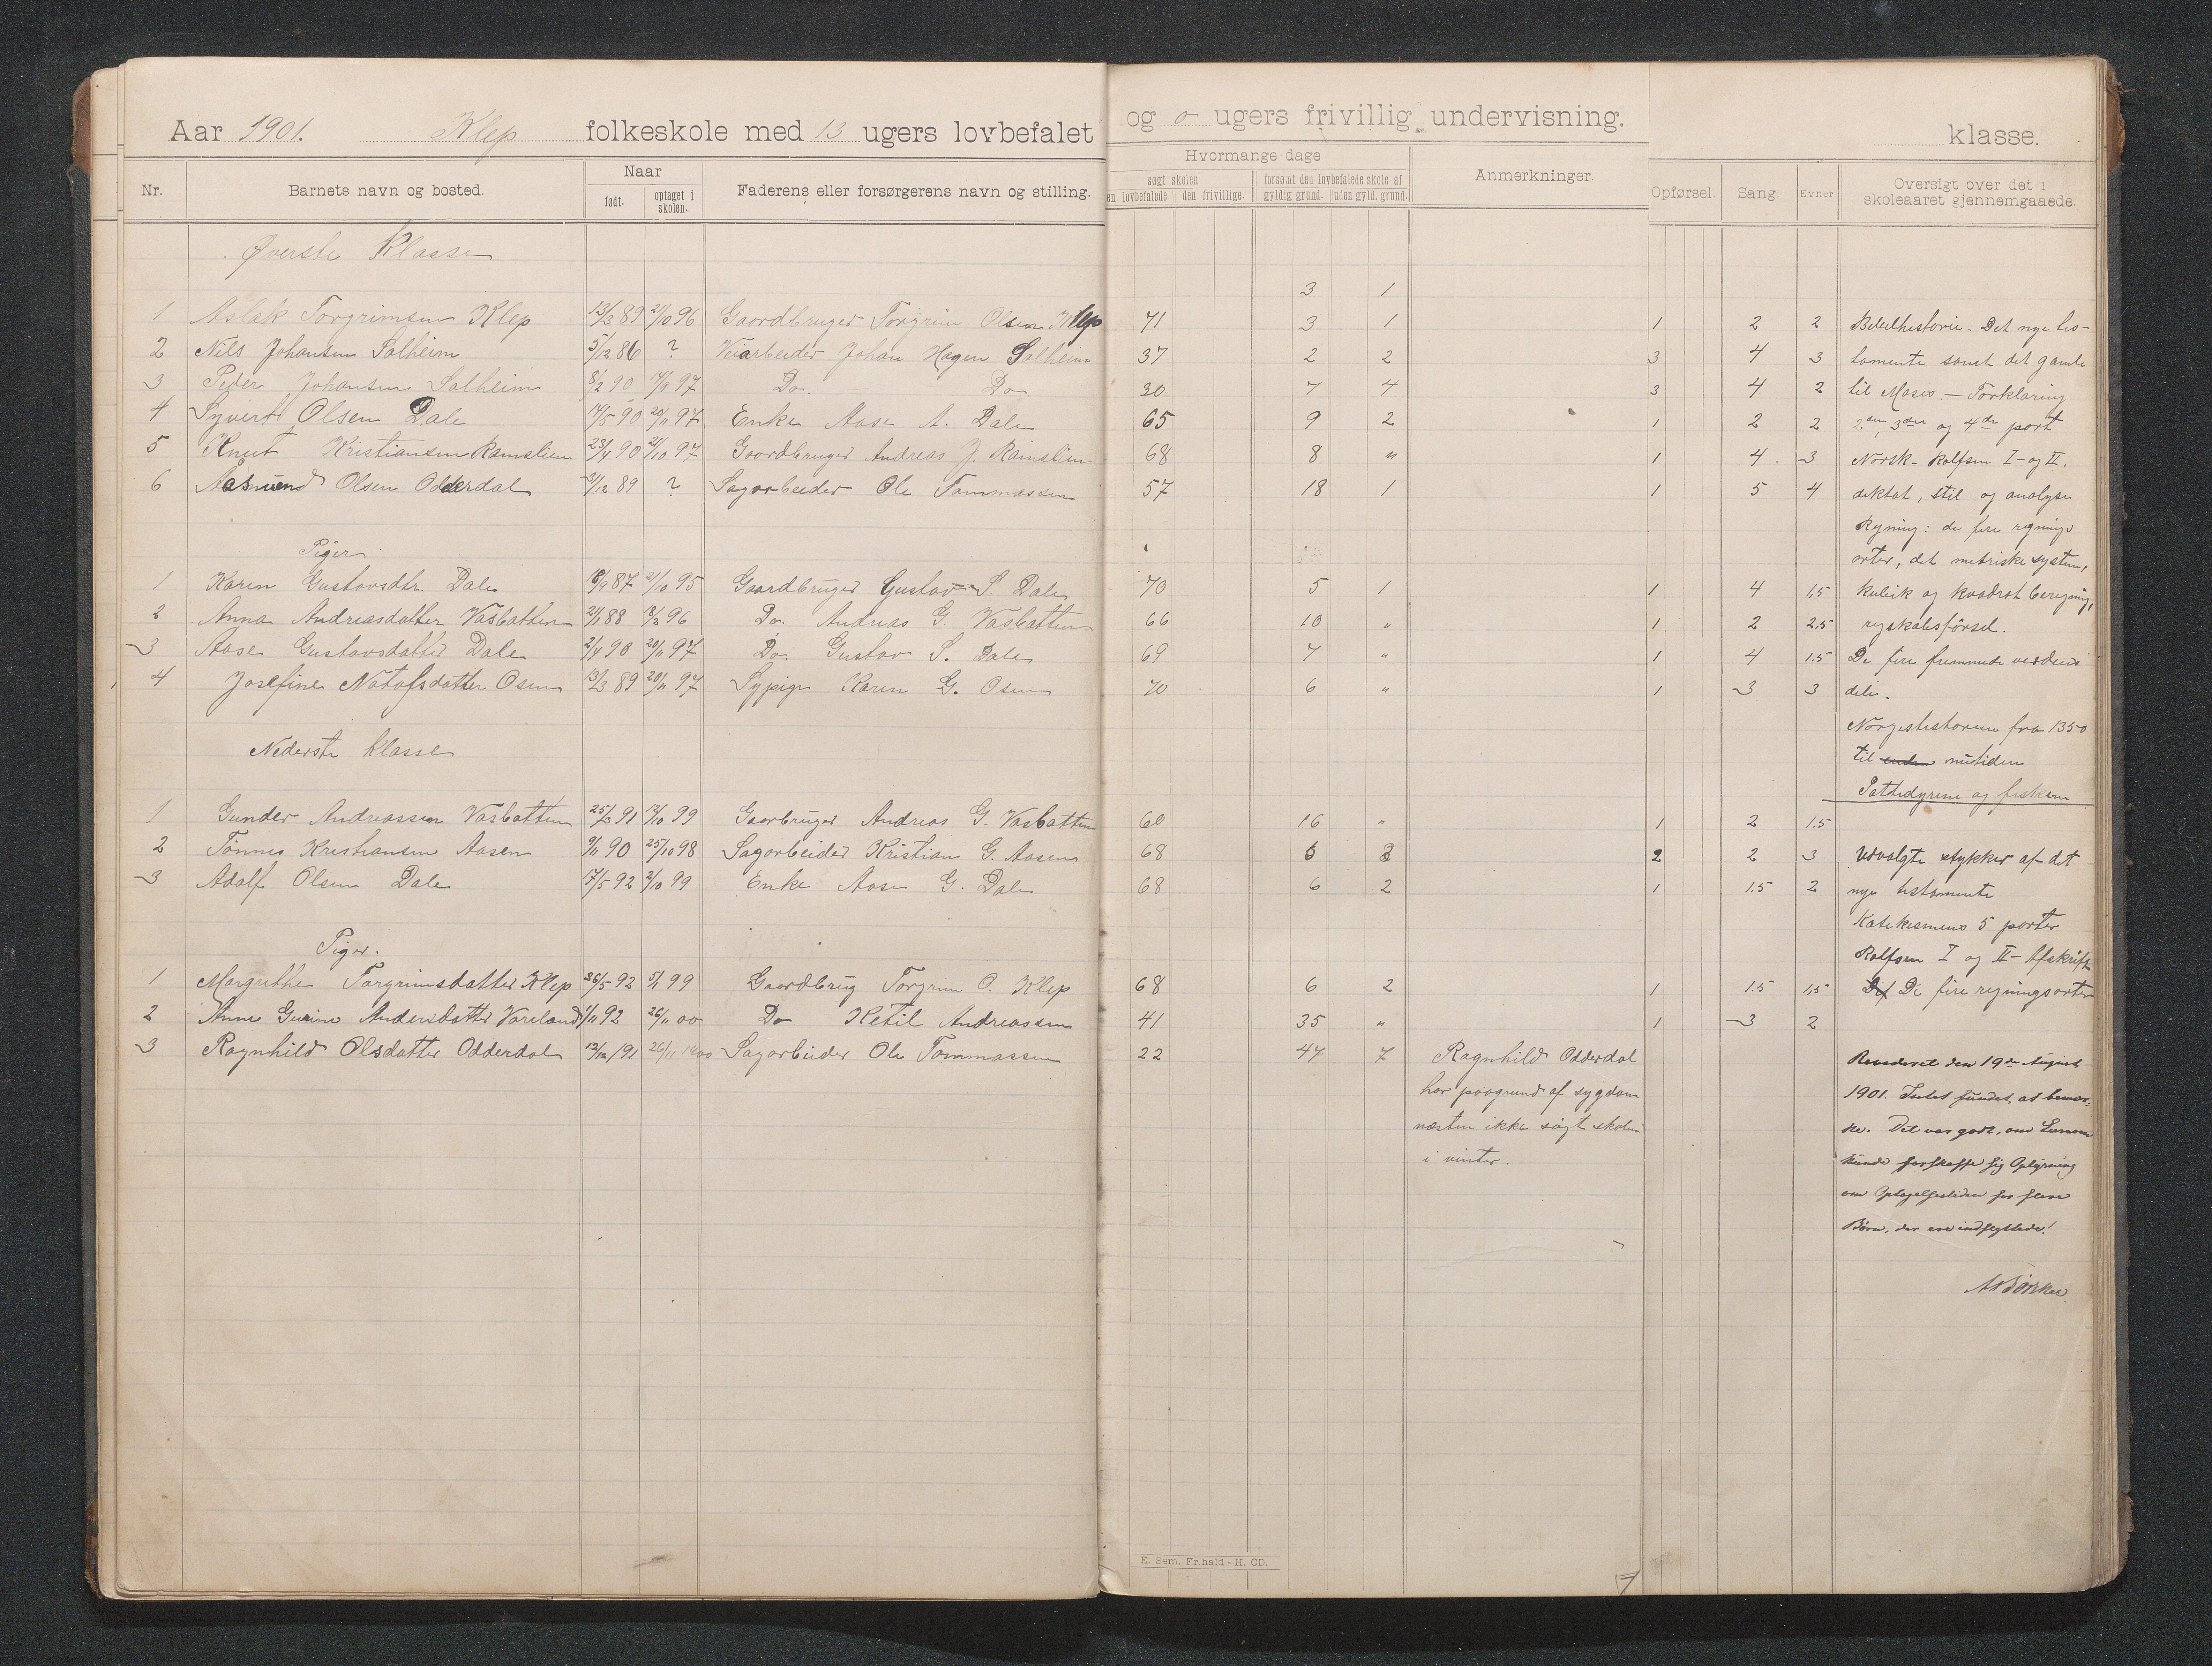 Aar 1901. Klep folkeskole med 13 ugers lovbefalet og o ugers frivillig undervisning. klasse.
Nr. Barnets navn og bosted. Naar født. optaget i skolen. Faderens eller forsørgerens navn og stilling. Hvormange dage søgt skolen en lovbefalede den frivillige. forsømt den lovbefalede skole af gyldig grund. uden gyld. grund. Anmerkninger. Opførsel. Sang. Evner Oversigt over det i skoleaaret gjennemgaaede.
Øverste Klasse
3 1
1 Aslak Torgrimsen Klep 13/3 89 21/10 96 Gaardbruger Torgrim Olsen Klep 71 3 1 1 2 2 Bibelhistorie - Det nye tes-
2 Nils Johansen Solheim 5/12 86 ? Veiarbeider Johan Hagen Solheim 37 2 2 3 4 3 tamente samt det gamle
3 Peder Johansen Solheim 8/2 90 17/9 97 Do. Do 30 7 4 3 4 2 til Moses. - Forklaring
4 Syvert Olsen Dale 14/5 90 20/11 97 Enke Aase A. Dale 65 9 2 1 2 2 2den, 3die og 4de part
5 Knut Kristiansen Ramslien 23/4 90 21/10 97 Gaardbruger Andreas J. Ramslien 68 8 " 1 4 3 Norsk - Rolfsen I- og II.
6 Aasmund Olsen Odderdal 31/12 89 ? Sagarbeider Ole Tommassen 57 18 1 1 5 4 diktat, stil og analyse
Regning: de fire regnings
Piger
arter, det metriske system,
1 Karen Gustavsdtr. Dale 18/9 87 21/10 95 Gaardbruger Gustav S Dale 70 5 1 1 4 1,5 kubik og kvadrat beregning,
2 Anna Andreasdatter Vasbotten 21/1 88 18/3 96 Do. Andreas G. Vasbotten 66 10 " 1 2 2,5 regskabsførsel.
3 Aase Gustavsdatter Dale 2/4 90 20/11 97 Do. Gustav S. Dale 69 7 " 1 4 1.5 De fire fremmede verdens
4 Josefine Notofsdatter Osen 13/3 89 20/11 97 Sypige Karen G. Osen 70 6 " 1 3 3 dele.
Norgeshistorien fra 1350
Nederste klasse
til nutiden
Pattedyrene og fiskene
1 Gunder Andreassen Vasbotten 25/3 91 12/10 99 Gaarbruger Andreas G. Vasbotten 60 16 " 1 2 1.5
2 Tønnes Kristiansen Aasen 9/11 90 25/10 98 Sagarbeider Kristian G. Aasen 68 6 2 2 2 3 Udvalgte stykker af det
3 Adolf Olsen Dale 17/5 92 2/10 99 Enke Aase G. Dale 68 6 2 1 1.5 2 nye testamente
Katekismens 5 parter
Piger.
Rolfsen I og II - Afskrift
1 Margrethe Torgrimsdatter Klep 26/5 92 5/1 99 Gaardbrug Torgrim O. Klep 68 6 2 1 1.5 1,5 De fire regningsarter
2 Anne Gurine Andersdatter Vareland 1/11 92 26/11 00 Do Ketil Andreassen 41 35 " 1 3 2
3 Ragnhild Olsdatter Odderdal 13/12 91 26/11 1900 Sagarbeider Ole Tommassen 22 47 7 Ragnhild Odderdal Revideret den 19de August
har paagrund af sygdom 1901. Intet fundet at bemær-
næsten ikke søgt skolen ke. Det var godt, om Læreren
i vinter. kunde forskaffe sig Oplysning
om Optagelsestiden for flere
Børn, der ere indflyttede!
E. Sem, Fr.hald - H. CD.